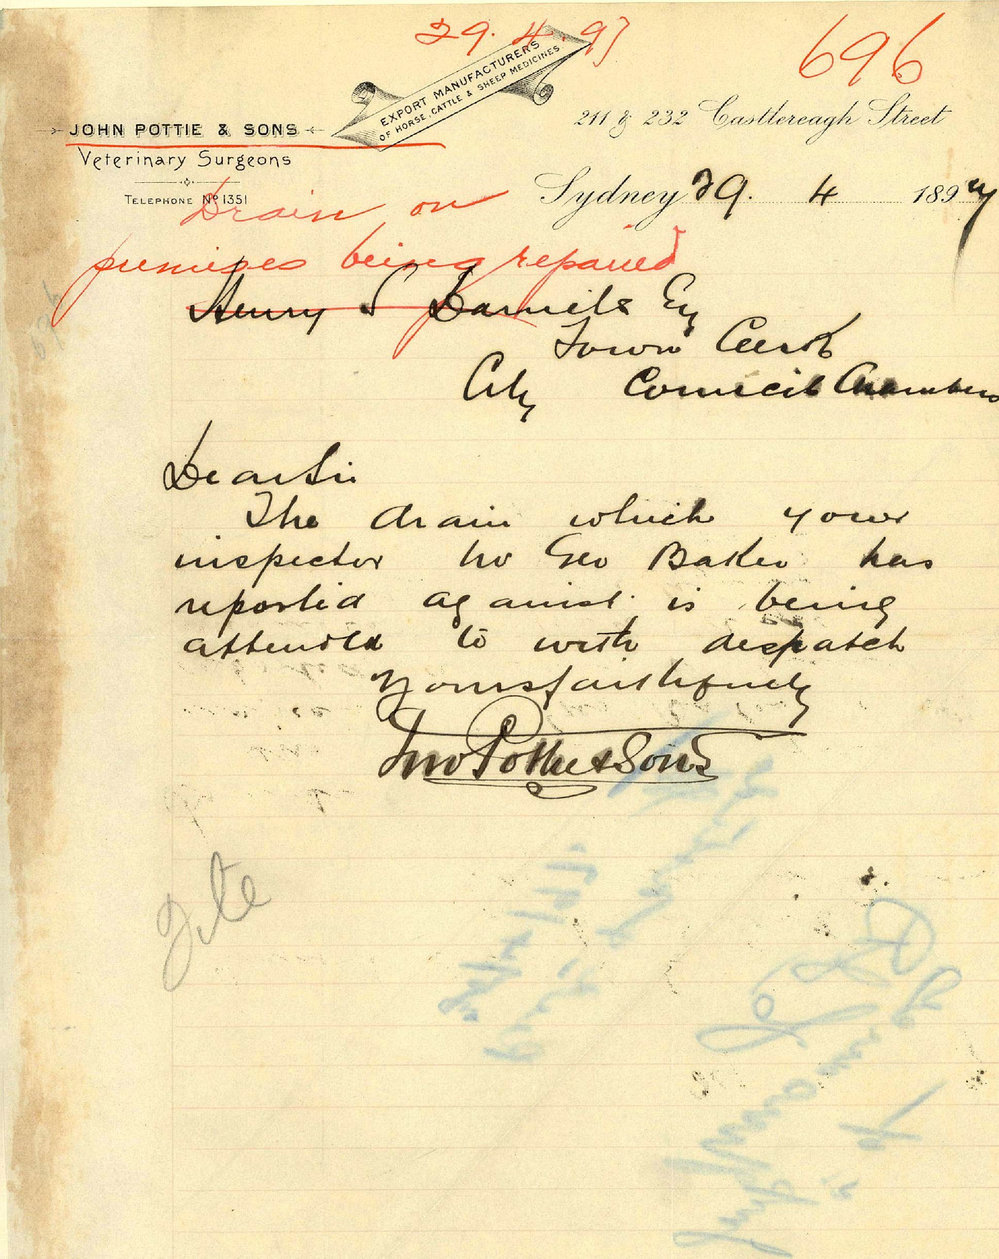 29.4.97
696
EXPORT MANUFACTURERS
OF HORSE, CATTLE & SHEEP MEDICINES
JOHN POTTIE & SONS
Veterinary Surgeons
TELEPHONE No 1351
211 & 232 Castlereagh Street
Sydney 29. 4 1897
Drain on
premises being repaired
Henry S Daniels Esq
Town Clerk
City Council Chambers
Dear Sir
The drain which your
inspector Mr Geo Baker has
reported against is being
attended to with despatch
Yours faithfully
Jno Pottie & Sons